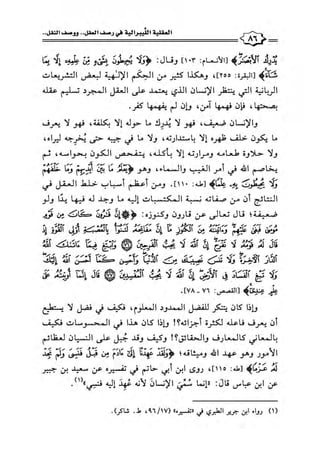 العقلية الليبرالية في رصف العقل.. ووصف النقل..
٨٦
يُدْرِكُ ٱلْأَبْصَٰرَ﴾ [الأنعام: ١٠٣] وقال: ﴿وَلَا يُحِيطُونَ بِشَىْءٍ مِّنْ عِلْمِهِۦٓ إِلَّا بِمَا
شَآءَ﴾ [البقرة: ٢٥٥]، وهكذا كثير من الحِكَم الإلهية لبعض التشريعات
الربانية التي ينتظر الإنسان الذي يعتمد على العقل المجرد تسليم عقله
بصحتها، فإن فهمها آمن، وإن لم يفهمها كفر.
والإنسان ضعيف، فهو لا يُدرك ما حوله إلا بكلفة، فهو لا يعرف
ما يكون خلف ظهره إلا باستدارته، ولا ما في جيبه حتى يُخرجه ليراه،
ولا حلاوة طعامه ومرارته إلا بأكله، يتفحص الكون بحواسه، ثم
يخاصم الله في أمر الغيب والسماء، وهو ﴿يَعْلَمُ مَا بَيْنَ أَيْدِيهِمْ وَمَا خَلْفَهُمْ
وَلَا يُحِيطُونَ بِهِۦ عِلْمًا﴾ [طه: ١١٠]. ومن أعظم أسباب خلط العقل في
النتائج أن من صفاته نسبة المكتسبات إليه ما وجد له فيها يدًا ولو
ضعيفة؛ قال تعالى عن قارون وكنوزه: ﴿إِنَّ قَٰرُونَ كَانَ مِن قَوْمِ
مُوسَىٰ فَبَغَىٰ عَلَيْهِمْ وَءَاتَيْنَٰهُ مِنَ ٱلْكُنُوزِ مَآ إِنَّ مَفَاتِحَهُۥ لَتَنُوٓأُ بِٱلْعُصْبَةِ أُو۟لِى ٱلْقُوَّةِ إِذْ
قَالَ لَهُۥ قَوْمُهُۥ لَا تَفْرَحْ إِنَّ ٱللَّهَ لَا يُحِبُّ ٱلْفَرِحِينَ ۝ وَٱبْتَغِ فِيمَآ ءَاتَىٰكَ ٱللَّهُ
ٱلدَّارَ ٱلْءَاخِرَةَ وَلَا تَنسَ نَصِيبَكَ مِنَ ٱلدُّنْيَا وَأَحْسِن كَمَآ أَحْسَنَ ٱللَّهُ إِلَيْكَ
وَلَا تَبْغِ ٱلْفَسَادَ فِى ٱلْأَرْضِ إِنَّ ٱللَّهَ لَا يُحِبُّ ٱلْمُفْسِدِينَ ۝ قَالَ إِنَّمَآ أُوتِيتُهُۥ عَلَىٰ
عِلْمٍ عِندِىٓ﴾ [القصص: ٧٦ - ٧٨].
وإذا كان يتنكر للفضل الممدود المعلوم، فكيف في فضل لا يستطيع
أن يعرف فاعله لكثرة أجزائه؟! وإذا كان هذا في المحسوسات فكيف
بالمعاني كالمعارف والحقائق؟! وكيف وقد جُبل على النسيان لعظائم
الأمور وهو عهد الله وميثاقه؛ ﴿وَلَقَدْ عَهِدْنَآ إِلَىٰٓ ءَادَمَ مِن قَبْلُ فَنَسِىَ وَلَمْ نَجِدْ
لَهُۥ عَزْمًا﴾ [طه: ١١٥]، روى ابن أبي حاتم في تفسيره عن سعيد بن جبير
عن ابن عباس قال: «إنما سُمِّيَ الإنسانُ لأنه عُهِدَ إليه فنسي»(١).
(١) رواه ابن جرير الطبري في «تفسيره» (٩٦/١٧، ط. شاكر).